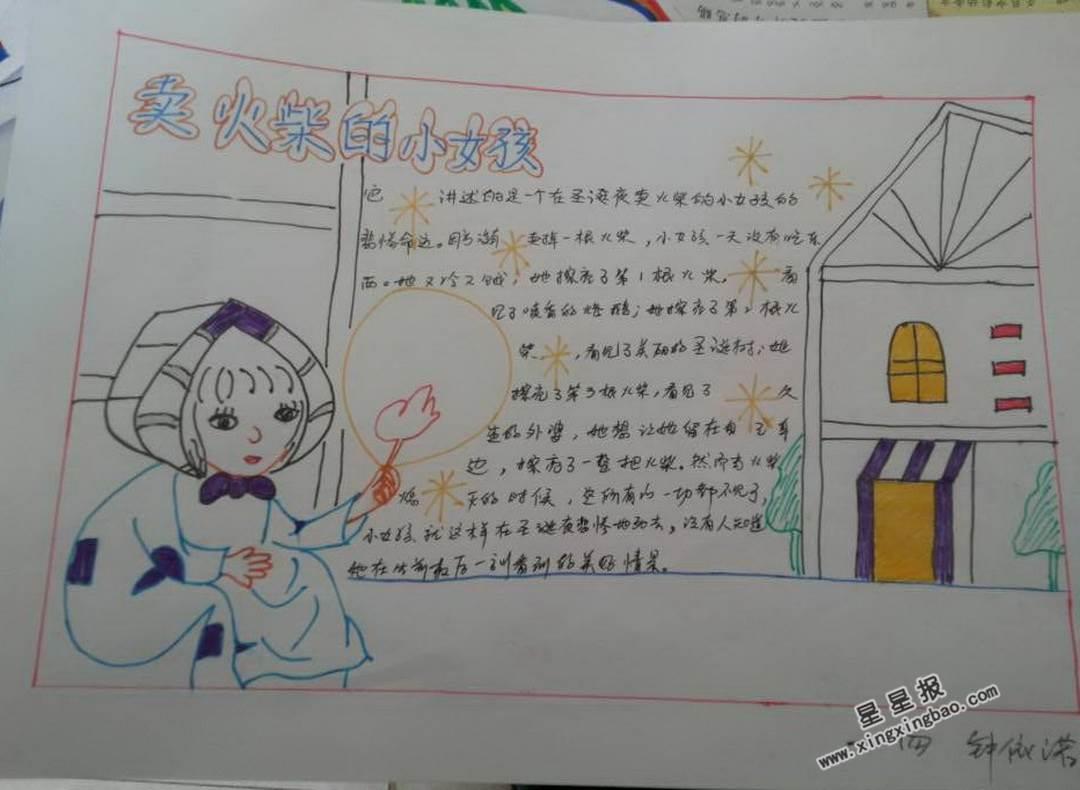 卖火柴的小女孩
它 讲述的是一个在圣诞夜卖火柴的小女孩的
悲惨命运。 卖掉一根火柴，小女孩一天没有吃东
西。她又冷又饿，她擦亮了第1根火柴， 看
见了喷香的烤鹅；她擦亮了第2根火
柴 ，看见了美丽的圣诞树；她
擦亮了第3根火柴，看见了 久
的外婆，她想让她留在自己身
边，擦亮了一整把火柴。然而当火柴
熄 灭的时候，这所有的一切都不见了，
小女孩就这样在圣诞夜悲惨地死去，没有人知道
她在 前最后一刻看到的美好情景。
星星报
www.xingxingbao.com
四 钟依诺